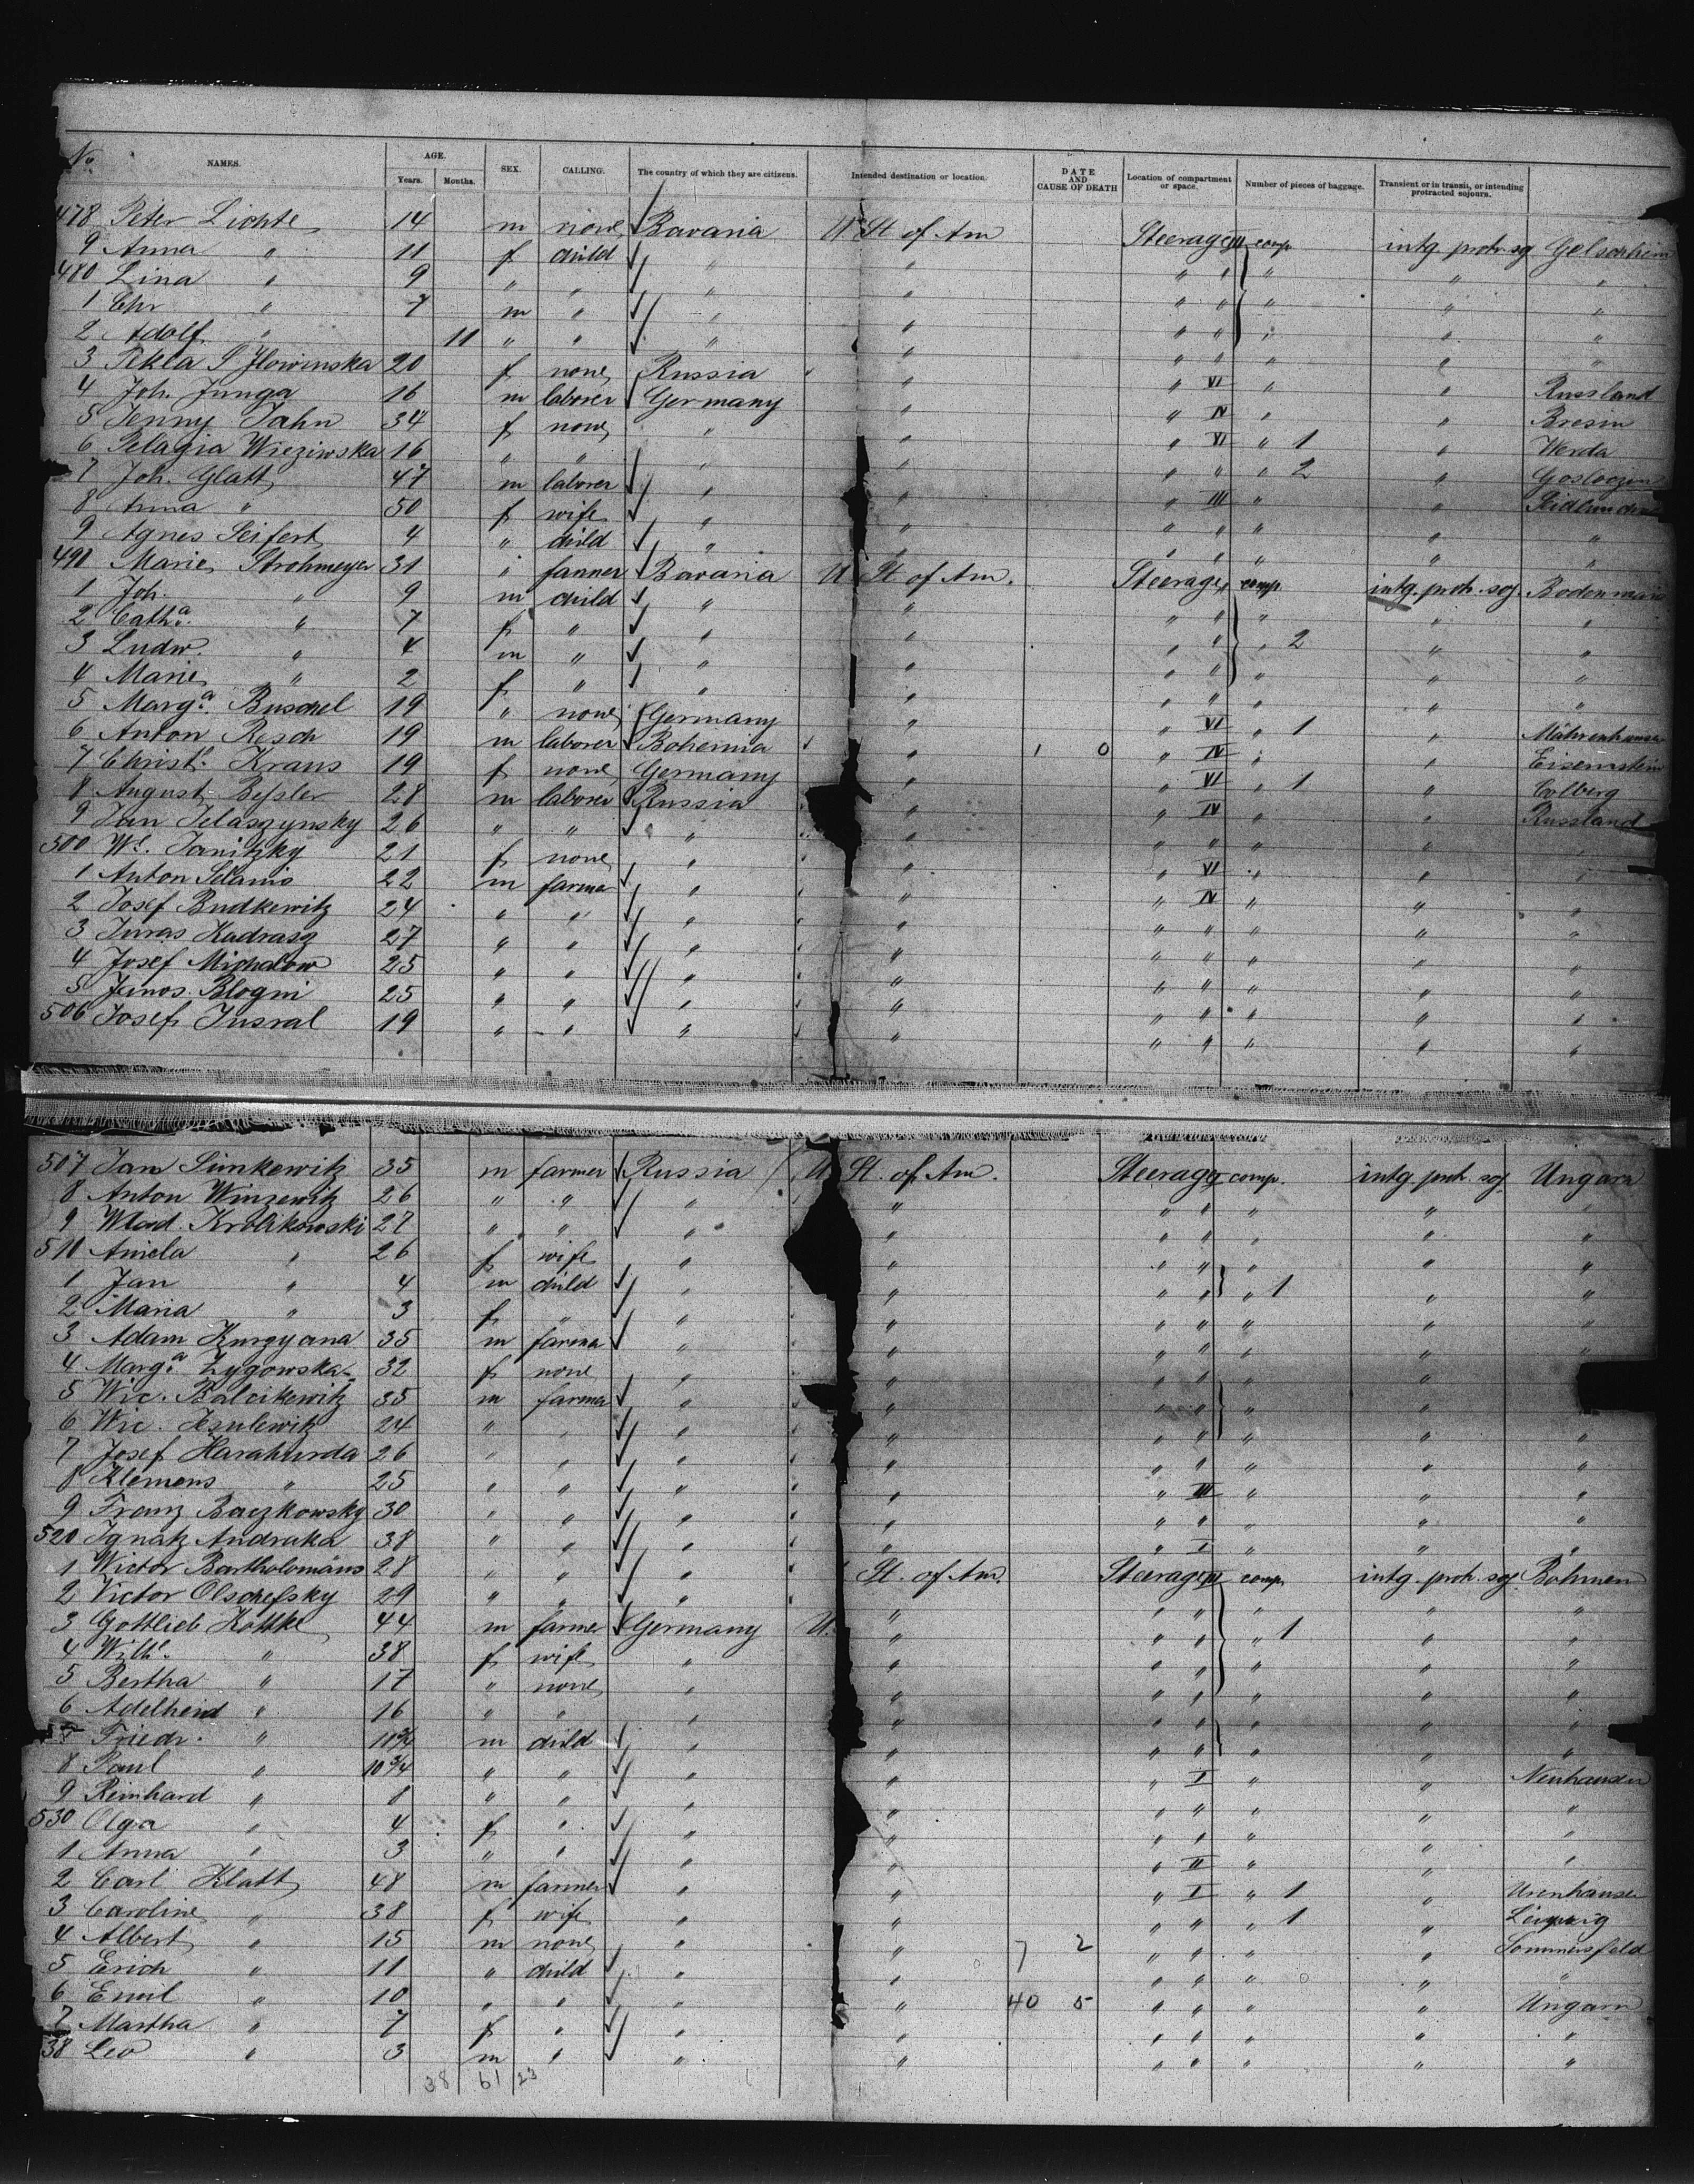 No NAMES. AGE. Years. Months. SEX. CALLING. The country of which they are citizens. Intended destination or location. DATE AND CAUSE OF DEATH Location of compartment or space. Number of pieces of baggage. Transient or in transit, or intending protracted sojourn.
478 Peter Lichte 14 m none Bavaria U St of Am Steerage comp intg. protr. sg Gelsenheim
9 Anna " 11 f child " " " " " "
480 Lina " 9 " " " " " " " "
1 Chr " 7 m " " " " " " "
2 Adolf " 11 " " " " " " " "
3 Tekla S. Ilowinska 20 f none Russia " " VI " " Russland
4 Joh. Junga 16 m laborer Germany " " IV " " Bresin
5 Jenny Jahn 34 f none " " " VI " 1 " Werda
6 Pelagia Wieziwska 16 " " " " " " " 2 "
7 Joh. Glatt 47 m laborer " " " III " "
8 Anna " 50 f wife " " " " " " "
9 Agnes Seifert 4 " child " " " " " " "
490 Marie Strohmeyer 31 " farmer Bavaria U St of Am. Steerage comp. intg. protr. soj. Bodenmais
1 Joh. " 9 m child " " " " " " "
2 Catha. " 7 f " " " " " " 2 " "
3 Ludw. " 4 m " " " " " " " "
4 Marie " 2 f " " " " " " " "
5 Marga. Buschel 19 " none Germany " " VI " 1 "
6 Anton Resch 19 m laborer Bohemia " 1 0 " IV " " Eisenstein
7 Christ. Kraus 19 f none Germany " " VI " 1 " Colberg
8 August Bessler 28 m laborer Russia " " IV " " Russland
9 Jan Telaszynsky 26 " " " " " " " " "
500 We. Janitzky 21 f none " " " VI " " "
1 Anton Selanis 22 m farmer " " " IV " " "
2 Josef Budkewitz 24 " " " " " " " " "
3 Juras Kadrasz 27 " " " " " " " " "
4 Josef Michalow 25 " " " " " " " " "
5 Janos Blogni 25 " " " " " " " " "
506 Josef Jusral 19 " " " " " " " " "
507 Jan Simkewitz 35 m farmer Russia U St. of Am. Steerage comp. intg. protr. soj Ungarn
8 Anton Winzewitz 26 " " " " " " " " "
9 Wlad. Krolikowski 27 " " " " " " " " "
510 Aniela " 26 f wife " " " " " " "
1 Jan " 4 m child " " " " " 1 " "
2 Maria " 3 f " " " " " " " "
3 Adam Kurgyana 35 m farmer " " " " " "
4 Marga. Zygowska 32 f none " " " " " "
5 Wic. Balcikewitz 35 m farmer " " " " " "
6 Wic. Jezulewitz 24 " " " " " " " " "
7 Josef Harahurda 26 " " " " " " " " "
8 Klemens " 25 " " " " " III " " "
9 Franz Baczkowsky 30 " " " " " " " " "
520 Ignatz Andruka 38 " " " " " I " " "
1 Wictor Bartholomäus 28 " " " St. of Am. Steerage comp intg. protr. soj Böhmen
2 Victor Olschefsky 29 " " " " " " " " "
3 Gottlieb Kottke 44 m farmer Germany U. " " " " 1 " "
4 Wilhe. " 38 f wife " " " " " " "
5 Bertha " 17 " none " " " " " " "
6 Adelheid " 16 " " " " " " " " "
7 Friedr. " 11 3/4 m child " " " " " " "
8 Paul " 10 3/4 " " " " " I " " Neuhausen
9 Reinhard " 8 " " " " " " " " "
530 Olga " 4 f " " " " " " " "
1 Anna " 3 " " " " " II " " "
2 Carl Klatt 48 m farmer " " " I " 1 "
3 Caroline " 38 f wife " " " " " 1 " Leipzig
4 Albert " 15 m none " " 7 2 " " " " Sommersfeld
5 Erich " 11 " child " " " " " " "
6 Emil " 10 " " " " 40 5 " " " " Ungarn
7 Martha " 7 f " " " " " " " "
38 Leo " 3 m " " " " " " " "
38 61 23